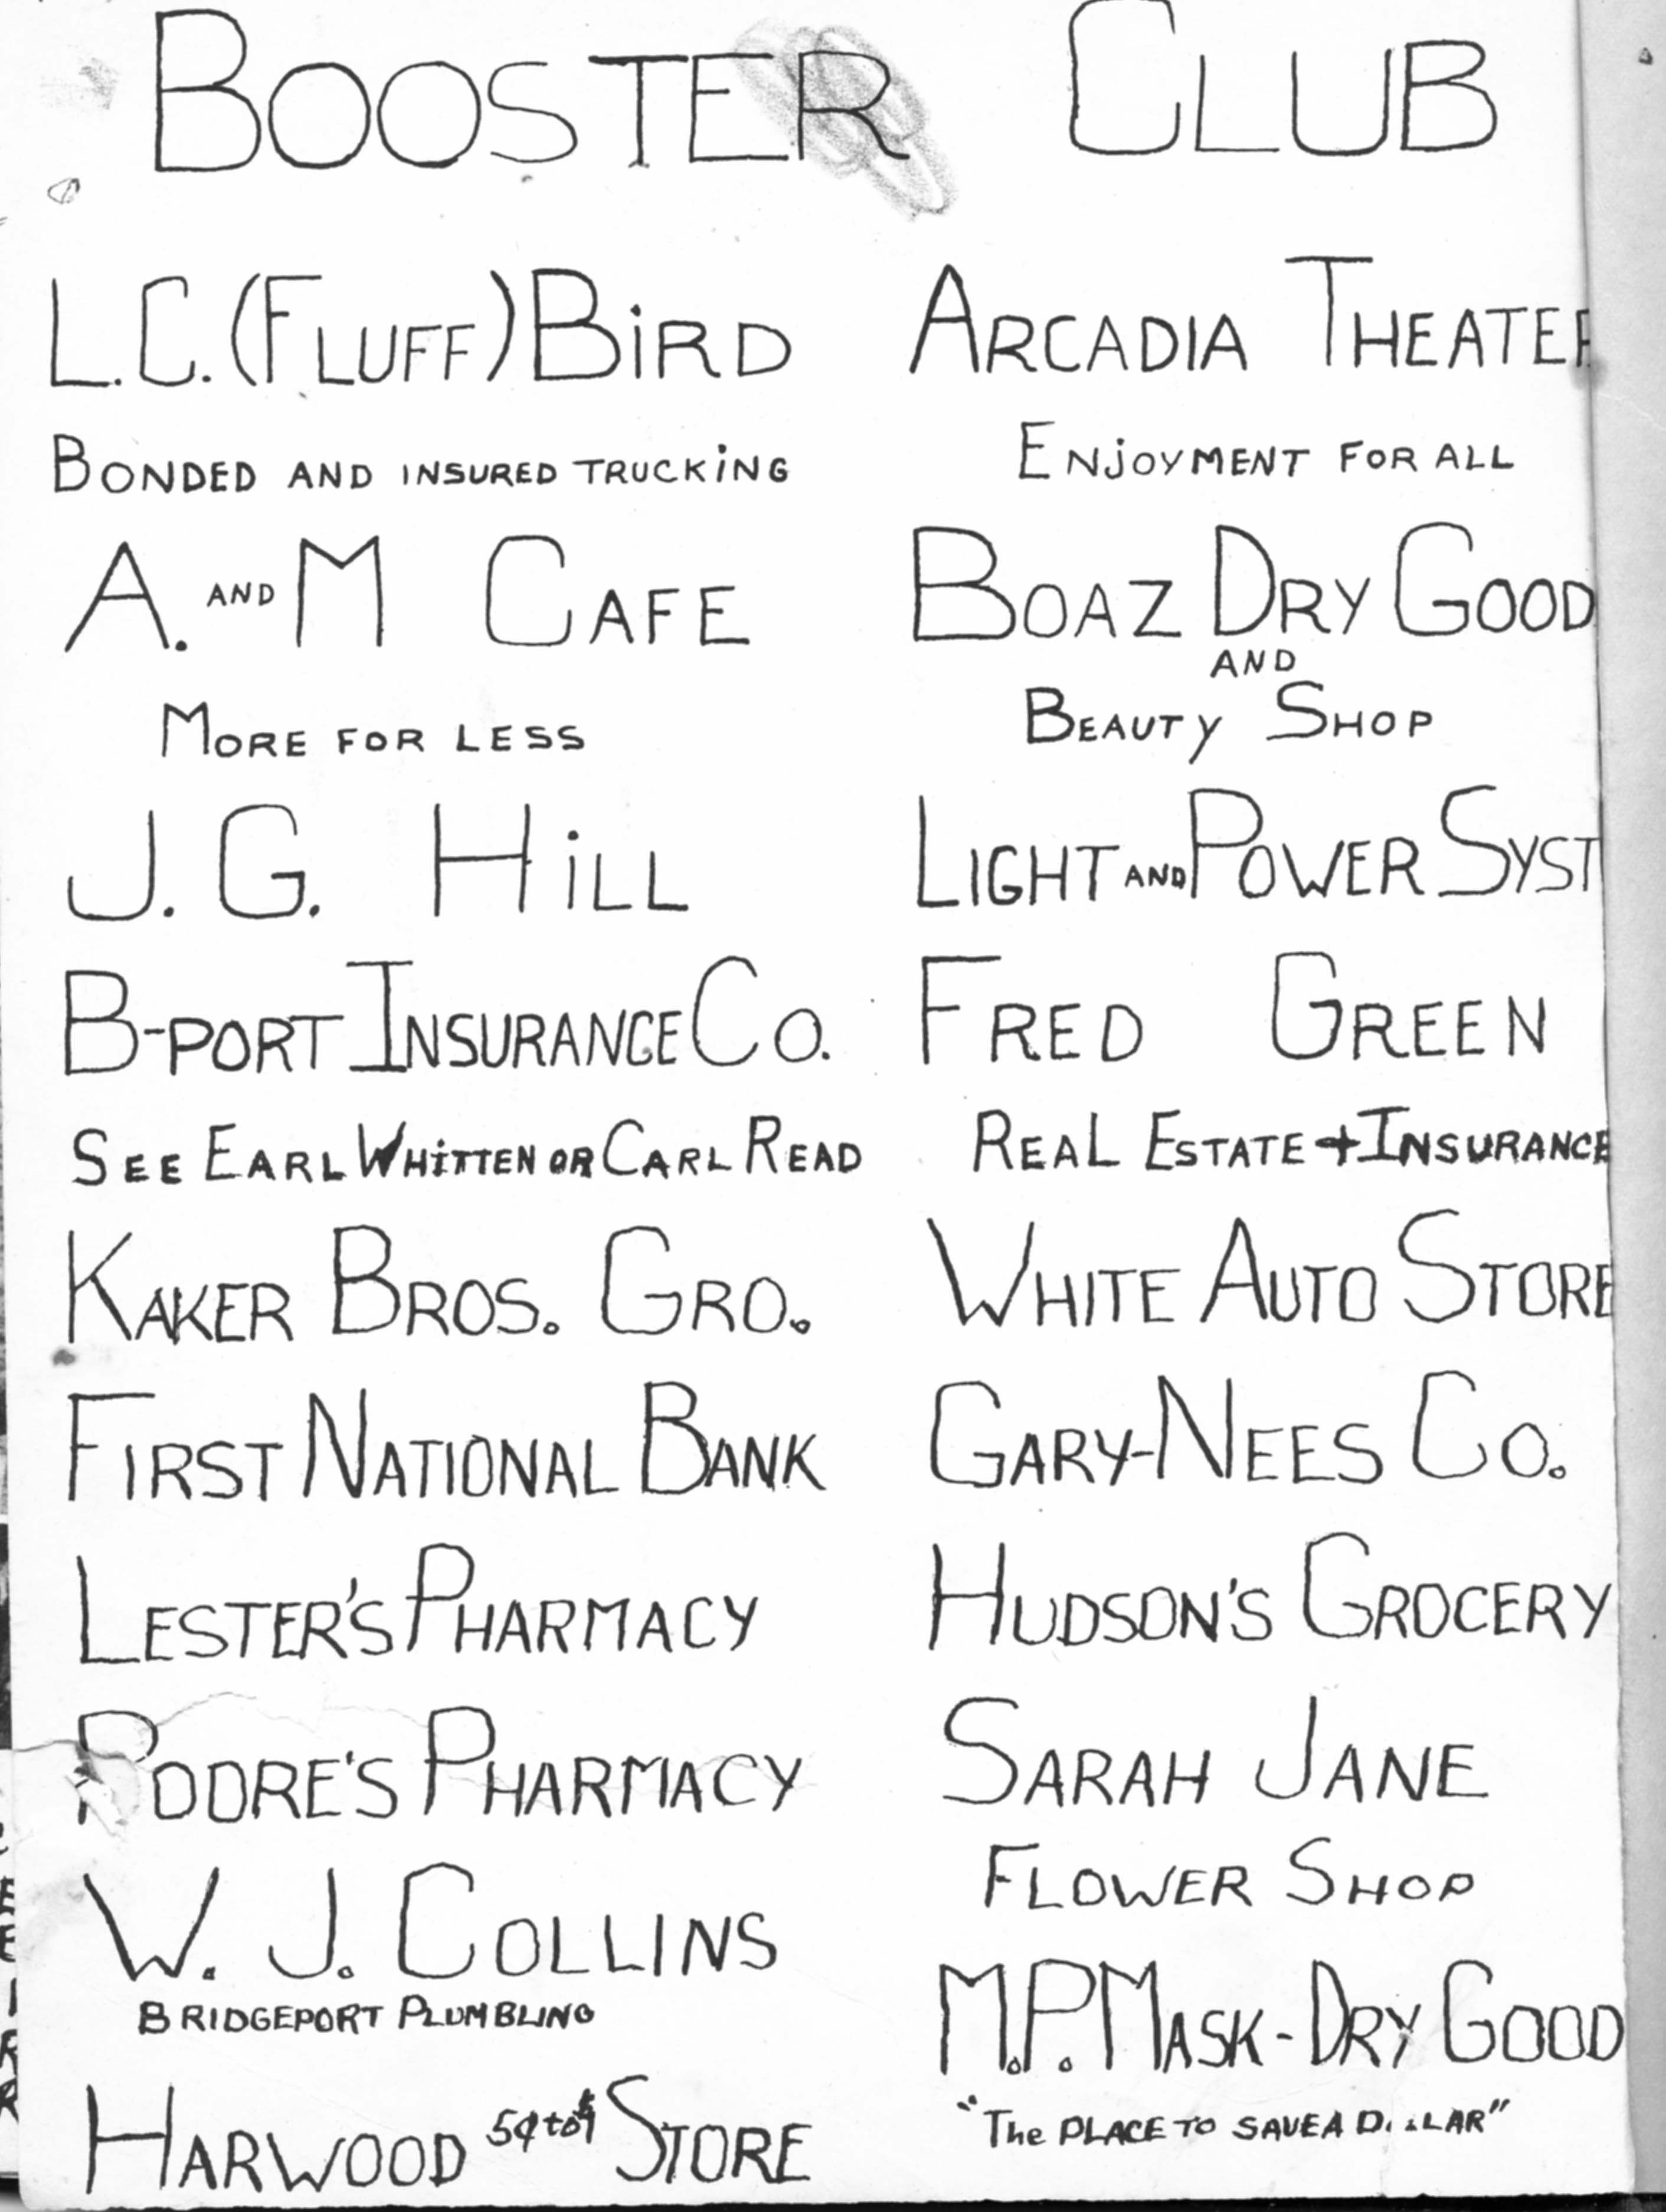 BOOSTER CLUB
L.C. (FLUFF) BiRD
BONDED AND INSURED TRUCKiNG
A. AND M CAFE
MORE FOR LESS
J. G. HiLL
B-PORT INSURANCE CO.
SEE EARL WHiTTEN OR CARL READ
KAKER BROS. GRO.
FIRST NATIONAL BANK
LESTER'S PHARMACY
POORE'S PHARMACY
W. J. COLLINS
BRIDGEPORT PLUMBLING
HARWOOD 5¢ to $1 STORE
ARCADIA THEATER
ENjOYMENT FOR ALL
BOAZ DRY GOOD
AND
BEAUTY SHOP
LIGHT AND POWER SYST
FRED GREEN
REAL ESTATE + INSURANCE
WHITE AUTO STORE
GARY-NEES CO.
HUDSON'S GROCERY
SARAH JANE
FLOWER SHOP
M.P. MASK - DRY GOOD
"The PLACE TO SAVE A DOLLAR"